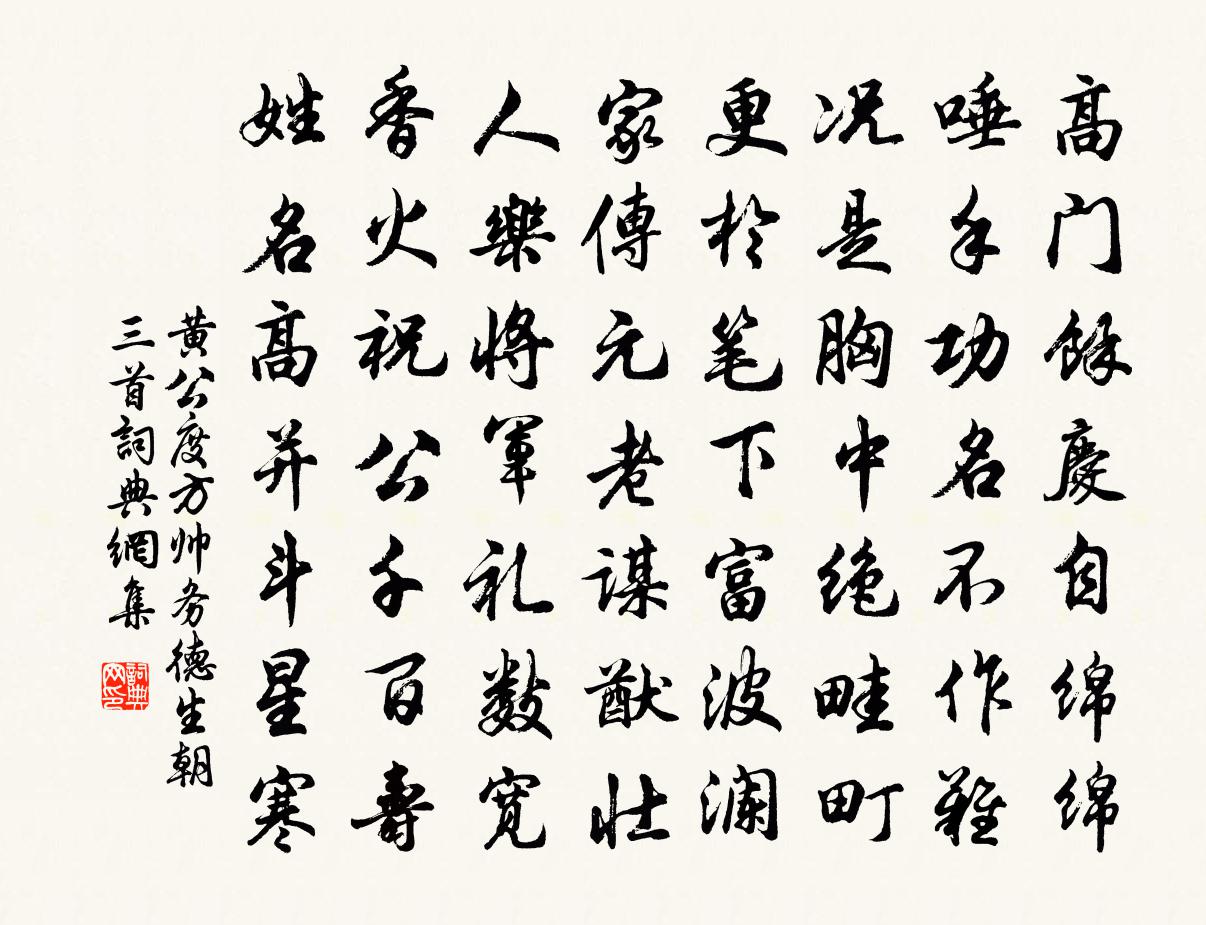 高门餘慶自綿綿
唾手功名不作難
况是胸中绝畦町
更於笔下富波澜
家傳元老謀猷壮
人樂將軍礼数宽
香火祝公千百壽
姓名高并斗星寒
黄公度方帅务德生朝
三首詞典網集
詞典
网印